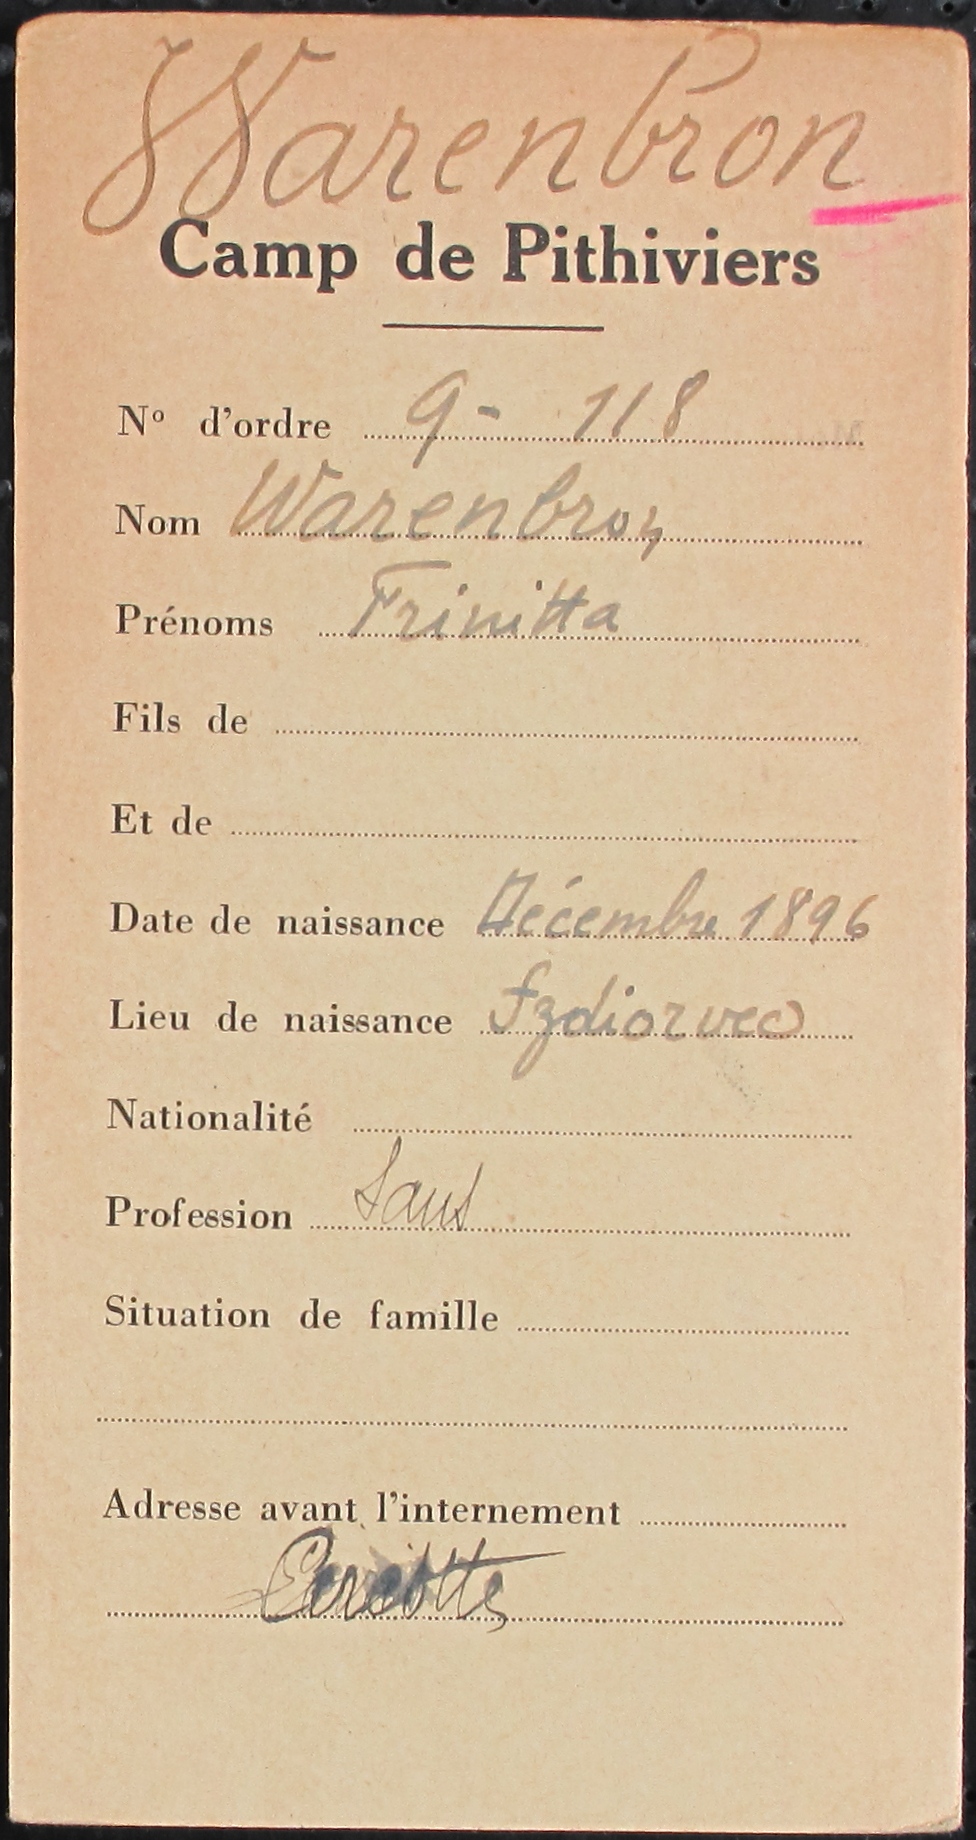 Warenbron
Camp de Pithiviers
Nº d'ordre 9- 118
Nom Warenbron
Prénoms Frinitta
Fils de
Et de
Date de naissance Décembre 1896
Lieu de naissance
Nationalité
Profession Sans
Situation de famille
Adresse avant l'internement
Cercottes